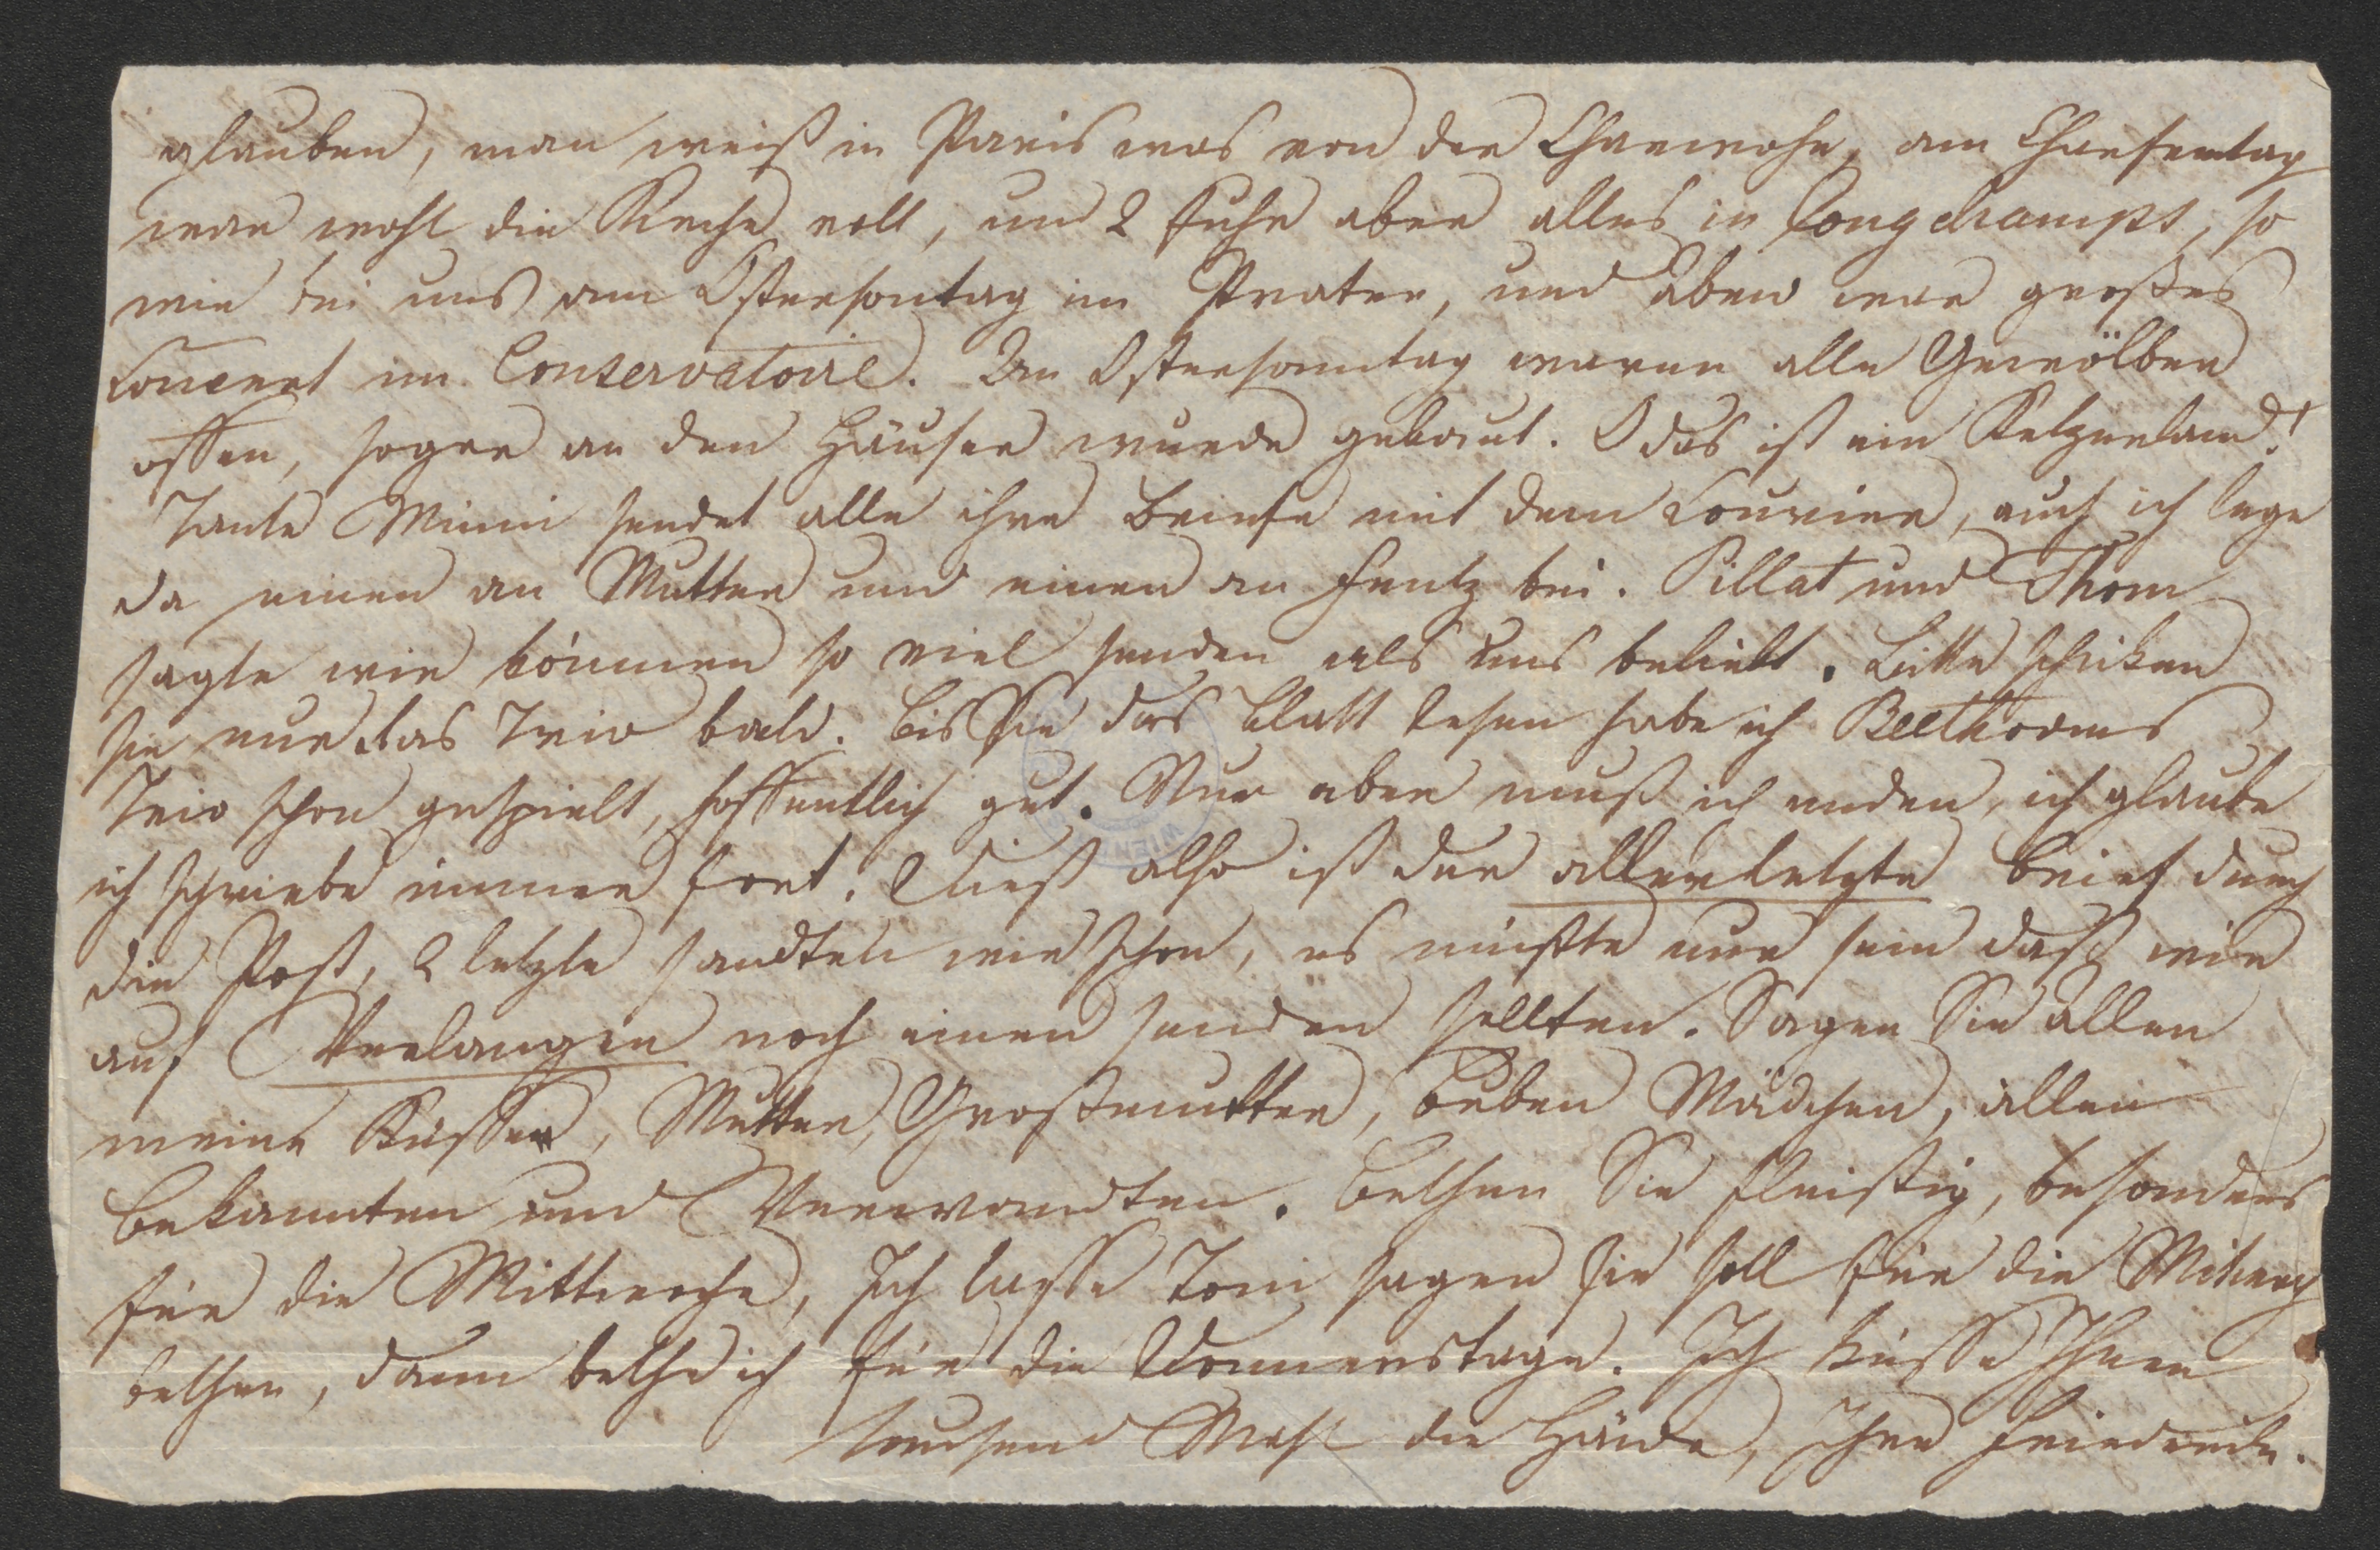 glauben, man weiß in Paris was von der Charwoche, am Charfreitag
war wohl die Kirche voll, um 2 Fuhr aber alles in Longchamps, so
wie bei uns am Ostersontag im Prater, und Abend war großes
Concert im Conservatoire. Am Ostersonntag waren alle Gewölber
offen, sogar an den Häuser wurde gebaut. O das ist ein Ketzerland!
Tante Minni sendet alle ihre Briefe mit dem Courier, auch ich lege
da einen an Mutter und einen an bei. Pillat und Thom
sagte wir können so viel senden als uns beliebt. Bitte schiken
sie nur das Trio bald. Bis Sie das Blatt lesen habe ich Beethovens
Trio schon gespielt, hoffentlich gut. Nun aber muß ich enden, ich glaube
ich schriebe immer fort. Dieß also ist der allerletzte Brief durch
die Post, 2 letzte sandten wir schon, es müßte nur sein daß wir
auf Verlangen noch einen senden sollten. Sagen Sie allen
meine Küsse, Mutter, Großmutter, Buben Mädchen, allen
Bekannten und Verwandten. Bethen Sie fleißig, besonders
für die Mittwoche, Ich lasse Toni sagen sie soll für die
bethen, dann bethe ich für die Donnerstage. Ich küsse Ihnen
tausend Mahl die Hände, Ihre Friederike.
WIEN